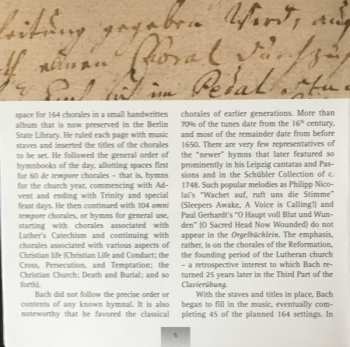 leitung gegeben wird, auf
Choral durchzu
im Pedal
space for 164 chorales in a small handwritten
album that is now preserved in the Berlin
State Library. He ruled each page with music
staves and inserted the titles of the chorales
to be set. He followed the general order of
hymnbooks of the day, allotting spaces first
for 60 de tempore chorales – that is, hymns
for the church year, commencing with Ad-
vent and ending with Trinity and special
feast days. He then continued with 104 omni
tempore chorales, or hymns for general use,
starting with chorales associated with
Luther's Catechism and continuing with
chorales associated with various aspects of
Christian life (Christian Life and Conduct; the
Cross, Persecution, and Temptation; the
Christian Church; Death and Burial; and so
forth).
Bach did not follow the precise order or
contents of any known hymnal. It is also
noteworthy that he favored the classical
chorales of earlier generations. More than
70% of the tunes date from the 16th century,
and most of the remainder date from before
1650. There are very few representatives of
the "newer" hymns that later featured so
prominently in his Leipzig cantatas and Pas-
sions and in the Schübler Collection of c.
1748. Such popular melodies as Philipp Nico-
lai's "Wachet auf, ruft uns die Stimme"
(Sleepers Awake, A Voice is Calling!) and
Paul Gerhardt's "O Haupt voll Blut und Wun-
den" (O Sacred Head Now Wounded) do not
appear in the Orgelbüchlein. The emphasis,
rather, is on the chorales of the Reformation,
the founding period of the Lutheran church
– a retrospective interest to which Bach re-
turned 25 years later in the Third Part of the
Clavierübung.
With the staves and titles in place, Bach
began to fill in the music, eventually com-
pleting 45 of the planned 164 settings. In